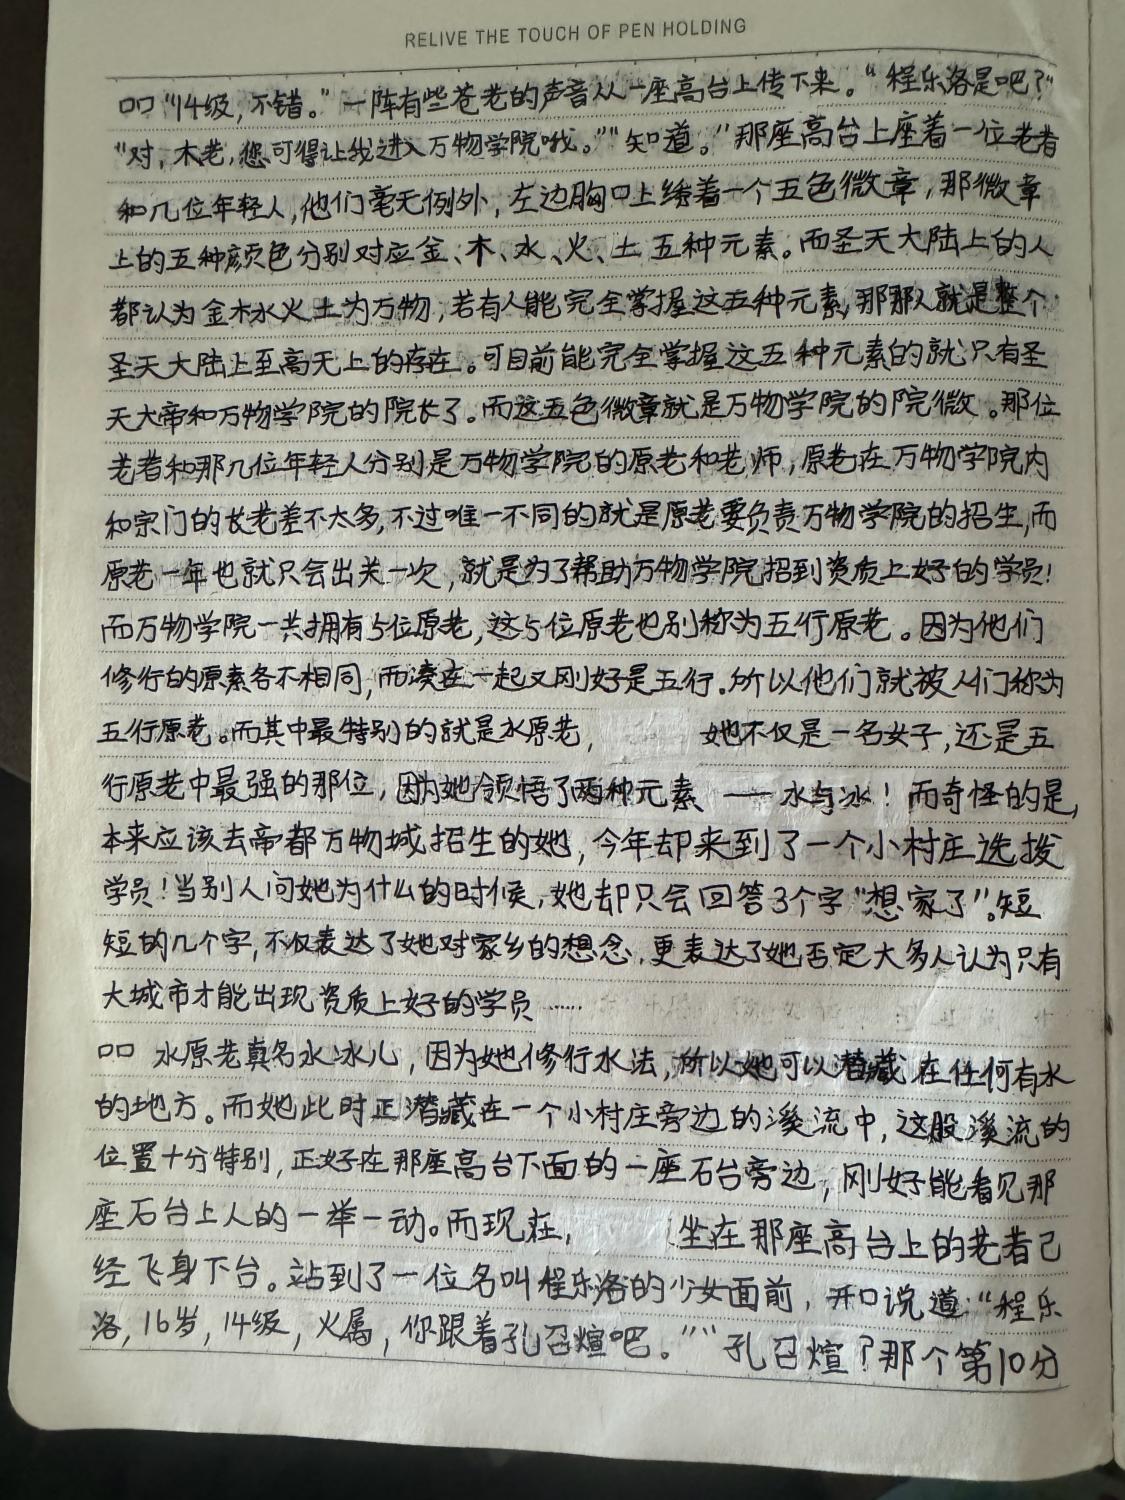 RELIVE THE TOUCH OF PEN HOLDING
口口“14级,不错。”一阵有些苍老的声音从一座高台上传下来。“程乐洛是吧?”
“对,木老,您可得让我进入万物学院哦。”“知道。”那座高台上座着一位老者
和几位年轻人,他们毫无例外,左边胸口上绣着一个五色微章,那微章
上的五种颜色分别对应金、木、水、火、土五种元素。而圣天大陆上的人
都认为金木水火土为万物,若有人能完全掌握这五种元素,那那人就是整个
圣天大陆上至高无上的存在。可目前能完全掌握这五种元素的就只有圣
天大帝和万物学院的院长了。而这五色微章就是万物学院的院微。那位
老者和那几位年轻人分别是万物学院的原老和老师,原老在万物学院内
和宗门的长老差不太多,不过唯一不同的就是原老要负责万物学院的招生,而
原老一年也就只会出关一次,就是为了帮助万物学院招到资质上好的学员!
而万物学院一共拥有5位原老,这5位原老也别称为五行原老。因为他们
修行的原素各不相同,而凑在一起又刚好是五行.所以他们就被人们称为
五行原老。而其中最特别的就是水原老, 她不仅是一名女子,还是五
行原老中最强的那位,因为她领悟了两种元素——水与冰!而奇怪的是,
本来应该去帝都万物城招生的她,今年却来到了一个小村庄选拨
学员!当别人问她为什么的时候,她却只会回答3个字“想家了”。短
短的几个字,不仅表达了她对家乡的想念,更表达了她否定大多人认为只有
大城市才能出现资质上好的学员……
口口 水原老真名水冰儿,因为她修行水法,所以她可以潜藏在任何有水
的地方。而她此时正潜藏在一个小村庄旁边的溪流中,这股溪流的
位置十分特别,正好在那座高台下面的一座石台旁边,刚好能看见那
座石台上人的一举一动。而现在, 坐在那座高台上的老者已
经飞身下台。站到了一位名叫程乐洛的少女面前,开口说道:“程乐
洛,16岁,14级,火属,你跟着孔召煊吧。”“孔召煊?那个第10分